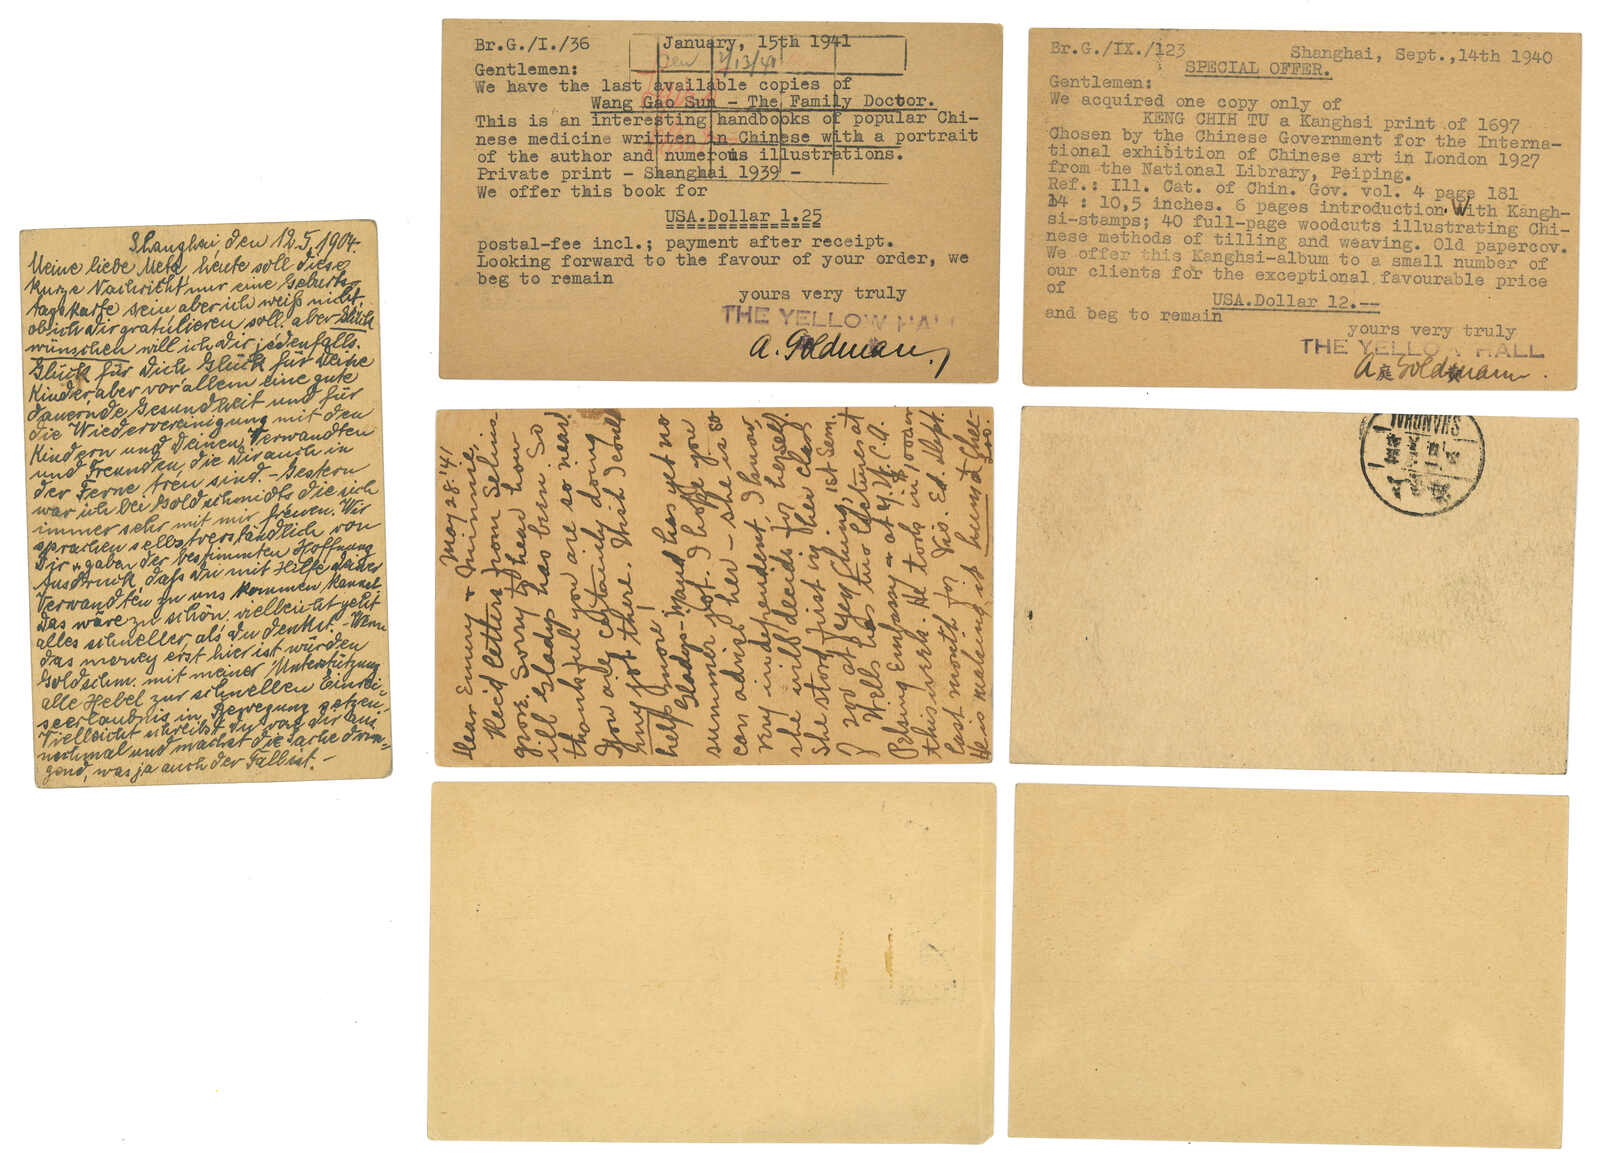 Shanghai, den 12.5.1904.
Meine liebe Meta, heute soll diese
kurze Nachricht nur eine Geburts-
tagskarte sein aber ich weiß nicht,
ob ich dir gratulieren soll, aber Glück
wünschen will ich dir jedenfalls.
Glück für dich Glück für deine
Kinder, aber vor allem eine gute
dauernde Gesundheit und für
die Wiedervereinigung mit den
Kindern und Deinen Verwandten
und Freunden, die dir auch in
der Ferne treu sind. - Gestern
war ich bei Goldschmidts die sich
immer sehr mit mir freuen. Wir
sprachen selbstverständlich von
Dir & gaben der bestimmten Hoffnung
Ausdruck, dass du mit Hilfe deiner
Verwandten zu uns kommen kannst.
Das wäre zu schön, vielleicht geht
alles schneller als du denkst. - Wenn
das money erst hier ist würden
Goldschm. mit meiner Unterstützung
alle Hebel zur schnellen Einrei-
seerlaubnis in Bewegung setzen.
Vielleicht schreibst du von dir aus
nochmal und machst die Sache drin-
gend, was ja auch der Fall ist. -
Br.G./I./36 January, 15th 1941
2/13/41
Gentlemen:
We have the last available copies of
Wang Gao Sun - The Family Doctor.
This is an interesting handbooks of popular Chi-
nese medicine written in Chinese with a portrait
of the author and numerous illustrations.
Private print - Shanghai 1939 -
We offer this book for
USA.Dollar 1.25
postal-fee incl.; payment after receipt.
Looking forward to the favour of your order, we
beg to remain
yours very truly
THE YELLOW HALL
A. Goldmann
Br.G./IX./123 Shanghai, Sept.,14th 1940
SPECIAL OFFER.
Gentlemen:
We acquired one copy only of
KENG CHIH TU a Kanghsi print of 1697
Chosen by the Chinese Government for the Interna-
tional exhibition of Chinese art in London 1927
from the National Library, Peiping.
Ref.: Ill. Cat. of Chin. Gov. vol. 4 page 181
14 : 10,5 inches. 6 pages introduction With Kangh-
si-stamps; 40 full-page woodcuts illustrating Chi-
nese methods of tilling and weaving. Old papercov.
We offer this Kanghsi-album to a small number of
our clients for the exceptional favourable price
of
USA.Dollar 12.--
and beg to remain
yours very truly
THE YELLOW HALL
A. Goldmann.
May 28. '41
Dear Emmy & Minnie,
Rec'd letters from Selins-
grove. Sorry to hear how
ill Gladys has been. So
thankful you are so near.
You are certainly doing
your part there. Wish I could
help more!
Gladys-Maud has yet no
summer job. I hope you
can advise her - she is so
very independent, I know,
she will decide for herself.
She stood first in her class
of 200 at Yenching, 1st Sem.
Wells has two lectures at
Peking Embassy & at Y.M.C.A.
this week. He took in
last month for Vis. Ed. Dept.
He is making it hum @ Chee-
Loo.
SHANGHAI